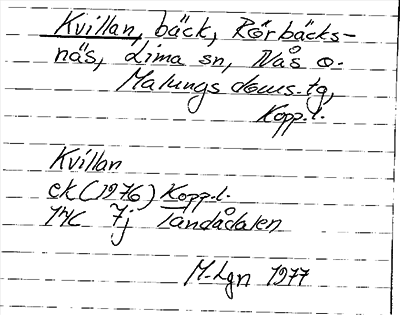 Kvillan, bäck, Rörbäcks-
näs, Lima sn, Nås o.
Malungs doms.tg,
Kopp.l.
Kvillan
ek (1976) Kopp.l.
14C 7j Tandådalen
M. Lgn 1977